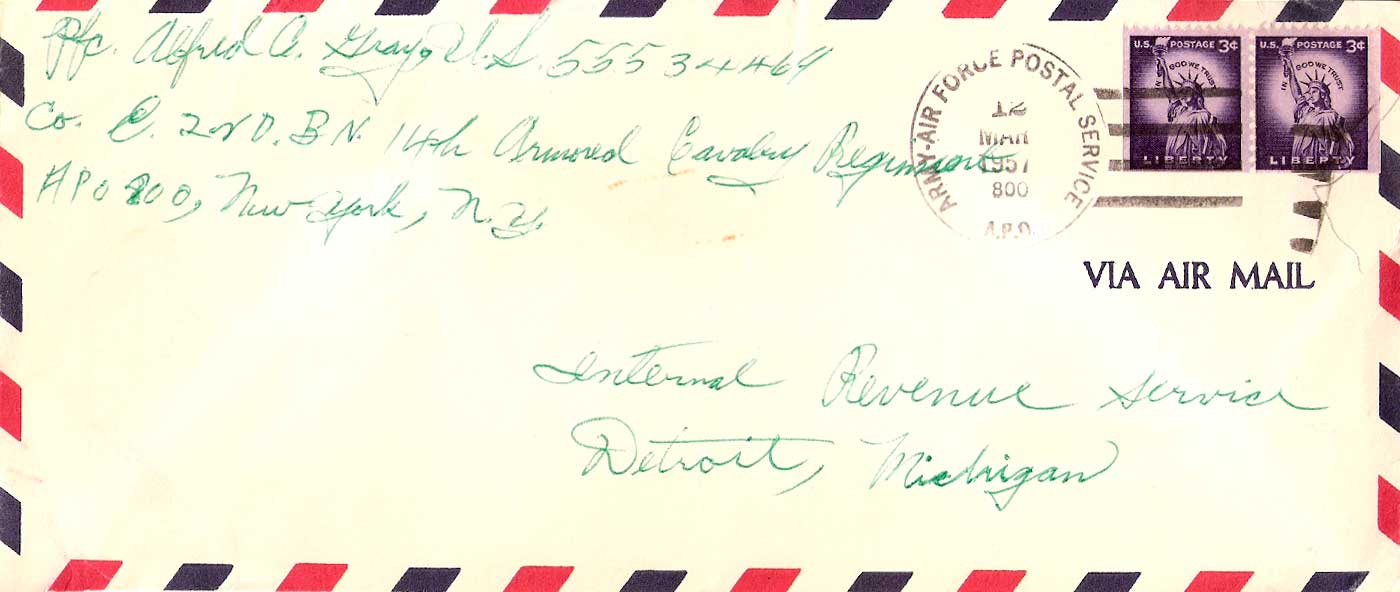 Pfc. Alfred A. Gray, U.S. 555 34469
Co. E. 2nd. BN. 14th Armored Cavalry Regiment
APO 800, New York, N.Y.
ARMY-AIR FORCE POSTAL SERVICE
12
MAR
1957
800
A.P.O.
U.S. POSTAGE 3¢
IN GOD WE TRUST
LIBERTY
U.S. POSTAGE 3¢
IN GOD WE TRUST
LIBERTY
VIA AIR MAIL
Internal Revenue Service
Detroit, Michigan